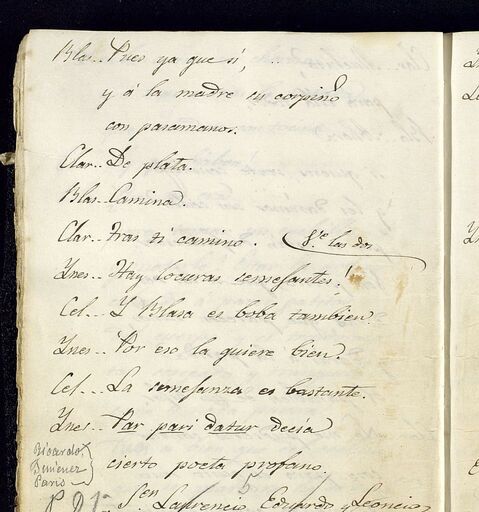 Blas.. Pues ya que sí, ...
y á la madre su corpiño
con pasamanos.
Clar.. De plata.
Blas. Camina.
Clar.. tras ti camino. Vse. las dos
Ynes.. Hay locuras semejantes!
Cel... Y Blasa es boba tambien.
Ynes.. Por eso la quiere bien.
Cel... La semejanza es bastante.
Ynes.. Par pari datur decia
cierto poeta profano.
Ricardo
Jimenez
Paris
Sen 5 Laurencio, Eduardo y Leoncio